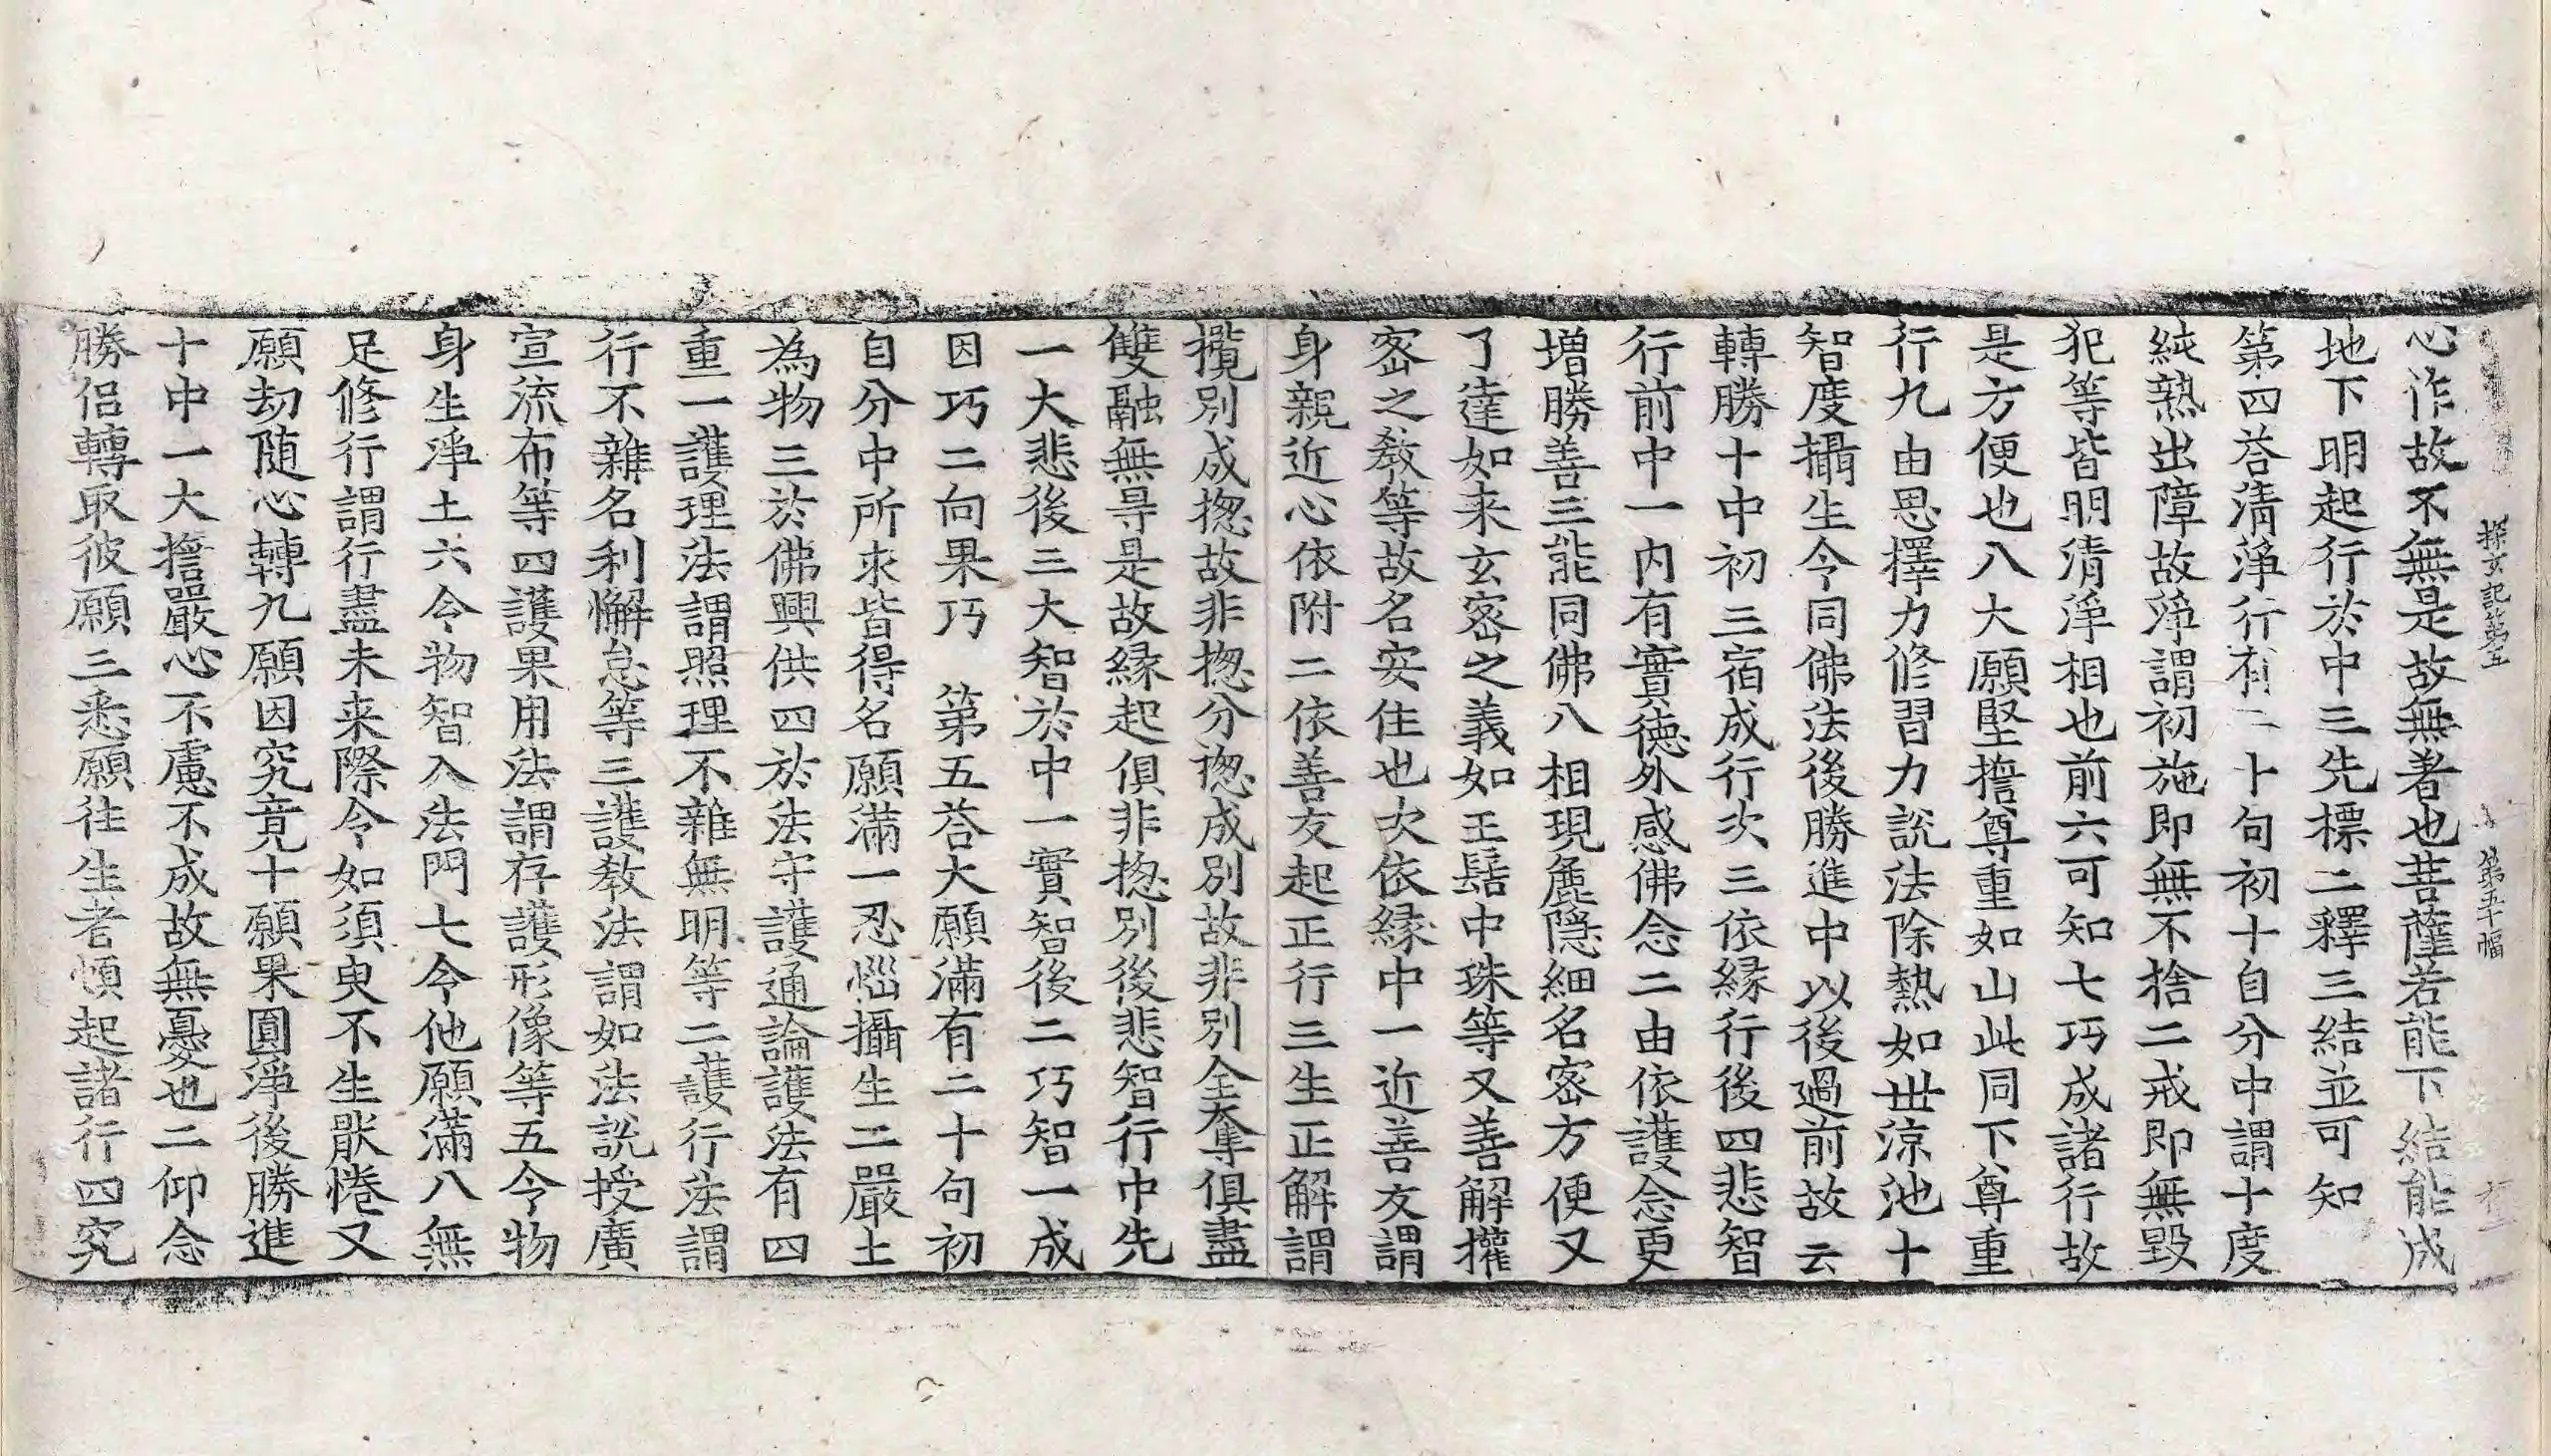 探玄記第五　第五十幅
心作故不無是故無著也菩薩若能下結能成
地下明起行於中三先標二釋三結並可知
第四荅清淨行有二十句初十自分中謂十度
純熟出障故淨謂初施即無不捨二戒即無毀
犯等皆明清淨相也前六可知七巧成諸行故
是方便也八大願堅擔尊重如山此同下尊重
行九由思擇力修習力說法除熱如世涼池十
智度攝生令同佛法後勝進中以後過前故云
轉勝十中初三宿成行次三依緣行後四悲智
行前中一內有實德外感佛念二由依護念更
增勝善三能同佛八相現麁隱細名密方便又
了達如来玄密之義如王髻中珠等又善解權
密之教等故名安住也次依緣中一近善友謂
身親近心依附二依善友起正行三生正解謂
攬別成揔故非揔分揔成別故非別全奪俱盡
雙融無㝵是故緣起俱非揔別後悲智行中先
一大悲後三大智於中一實智後二巧智一成
因巧二向果巧　第五荅大願滿有二十句初
自分中所求皆得名願滿一忍惱攝生二嚴土
為物三於佛興供四於法守護通論護法有四
重一護理法謂照理不雜無明等二護行法謂
行不雜名利懈怠等三護教法謂如法說授廣
宣流布等四護果用法謂存護形像等五令物
身生淨土六令物智入法門七令他願滿八無
足修行謂行盡未来際令如須臾不生猒惓又
願劫随心轉九願因究竟十願果圓淨後勝進
十中一大擔嚴心不慮不成故無憂也二仰念
勝侶轉取彼願三悉願往生者頓起諸行四究